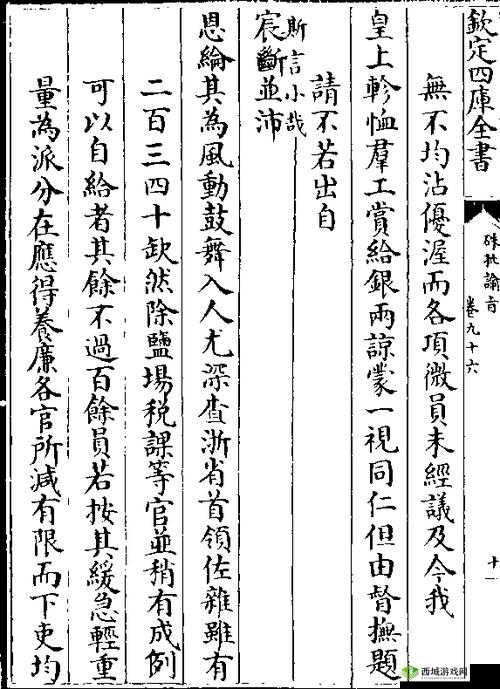 欽定四庫全書
硃批諭旨
卷九十六
十一
無不均沾優渥而各項微員未經議及今我
皇上軫恤羣工賞給銀兩諒蒙一視同仁但由督撫題
請不若出自
斯言小哉
宸斷並沛
恩綸其為風動鼓舞入人尤深查浙省首領佐雜雖有
二百三四十缺然除鹽場税課等官並稍有成例
可以自給者其餘不過百餘員若按其緩急輕重
量為派分在應得養廉各官所減有限而下吏均
西域游戏网